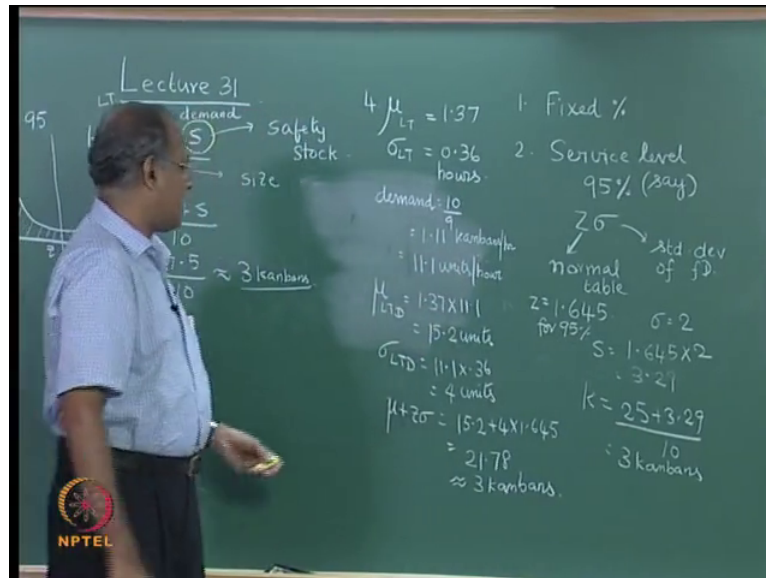 Lecture 31
LT
demand
95
S
safety
stock.
size
S
10
7.5
10
≈ 3 kanbans
4. μLT = 1.37
σLT = 0.36
hours.
demand = 10
9
= 1.11 kanban/hr
= 11.1 units/hour
μLTD = 1.37×11.1
= 15.2 units
σLTD = 11.1×.36
= 4 units
μ+zσ = 15.2+4×1.645
= 21.78
≈ 3 kanbans.
1. Fixed %
2. Service level
95% (say)
Zσ
normal
table
std. dev
of
Z=1.645
for 95%
σ=2
S= 1.645×2
= 3.29
k = 25+3.29
10
= 3 kanbans
NPTEL